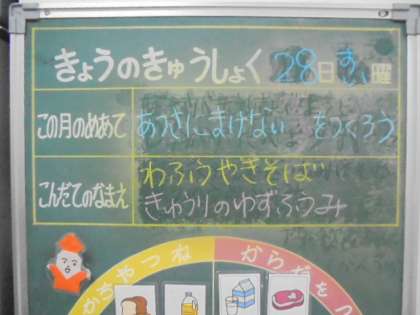 きょうのきゅうしょく 28日 すい曜
この月のめあて あつさにまけない をつくろう
こんだてのなまえ わふうやきそば
きゅうりのゆずふうみ